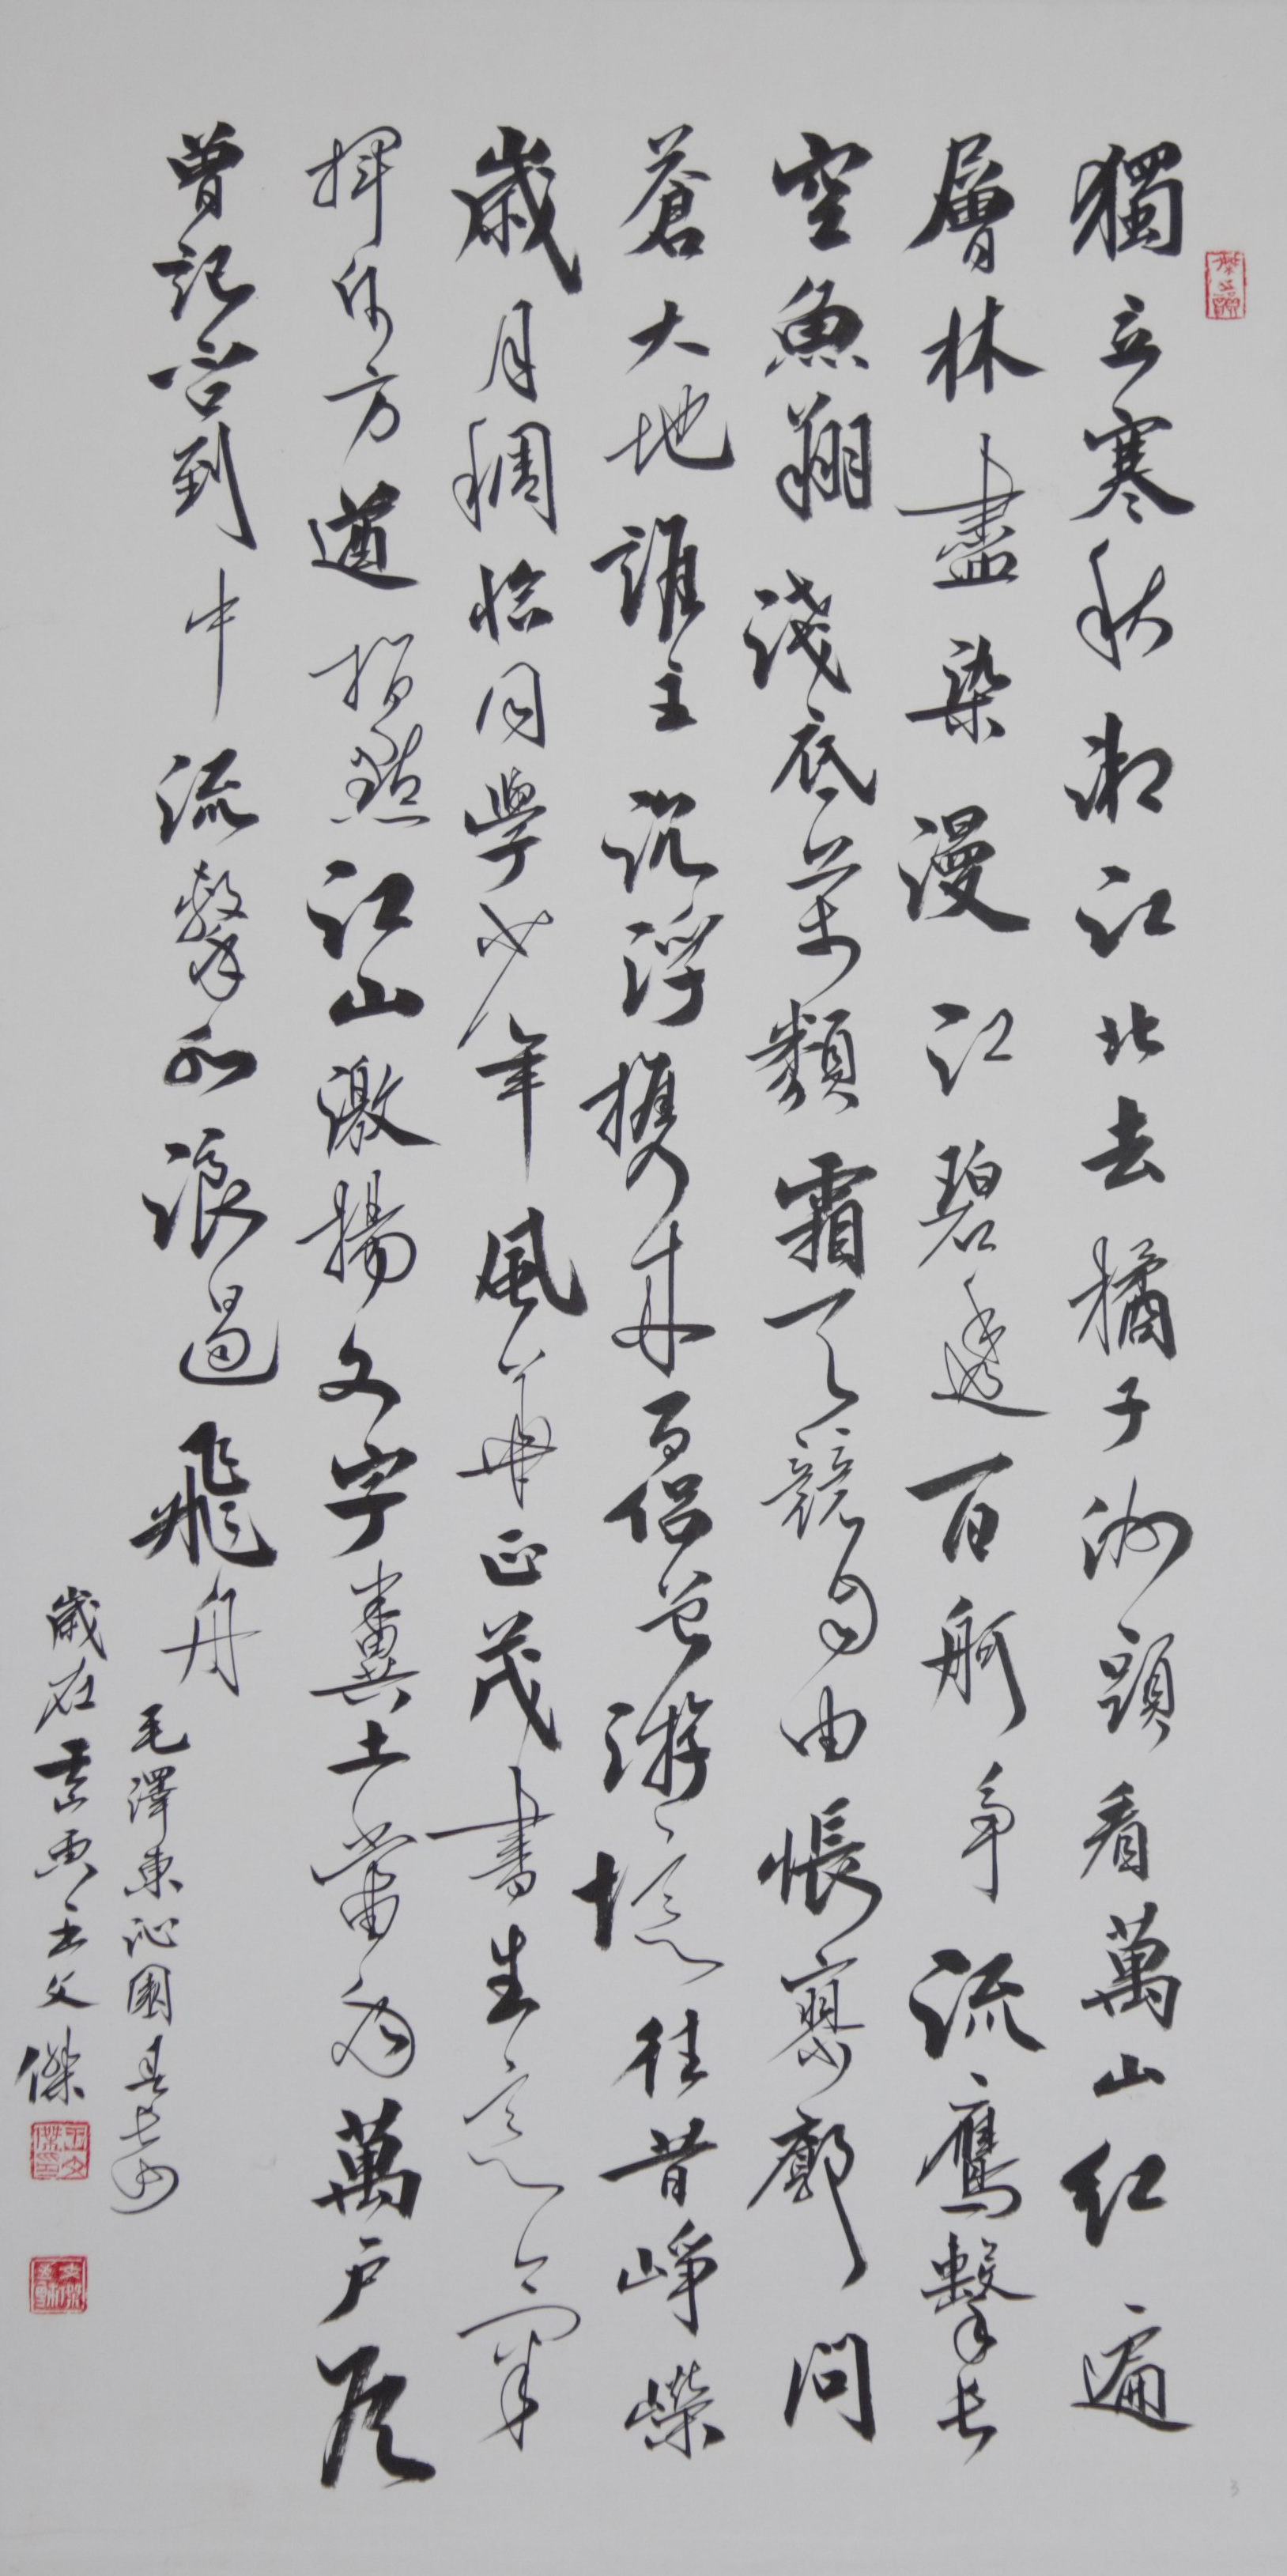 獨立寒秋湘江北去橘子洲頭看萬山紅遍
層林盡染漫江碧透百舸争流鷹擊長
空魚翔淺底萬類霜天競自由悵寥廓問
蒼大地誰主沉浮携來百侣曾游憶往昔崢嶸
歲月稠恰同學少年風華正茂書生意氣
揮斥方遒指點江山激揚文字糞土當年萬户侯
曾記否到中流擊水浪遏飛舟
毛澤東沁園春長沙
歲在庚寅王文傑
王文傑印